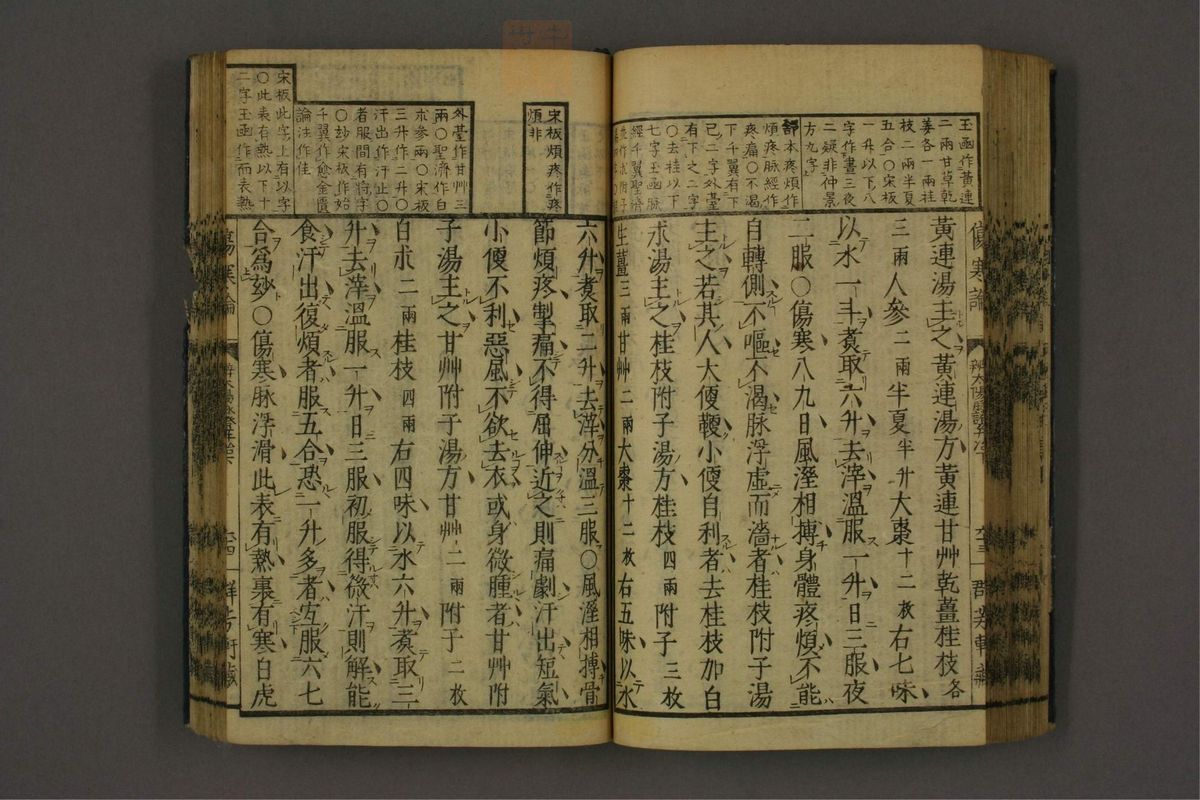 玉函作黃連
二兩甘草乾
姜各一兩桂
枝二兩半夏
五合〇宋板
一升以下八
字作晝三夜
二疑非仲景
方九字
舒本疼煩作
煩疼脉經作
疼痛〇不渴
下千翼有下
已二字外臺
有下之二字
〇去桂以下
七字玉函脉
經千翼聖濟
傷寒論
黃連湯主之黃連湯方黃連甘艸乾薑桂枝各
三兩人參二兩半夏半升大棗十二枚右七味
以水一斗煑取六升去滓溫服一升日三服夜
二服〇傷寒八九日風溼相搏身體疼煩不能
自轉側不嘔不渴脉浮虛而濇者桂枝附子湯
主之若其人大便鞕小便自利者去桂枝加白
朮湯主之桂枝附子湯方桂枝四兩附子三枚
生薑三兩甘艸二兩大棗十二枚右五味以水
宋板煩疼作疼
煩非
外臺作甘艸三
兩〇聖濟作白
朮參兩〇宋板
三升作二升〇
汗出作汗止〇
者服間有將字
〇玅宋板作始
千翼作愈金匱
論注作佳
宋板此字上有以字
〇此表有熱以下十
二字玉函作而表熱
六升煑取二升去滓分溫三服〇風溼相搏骨
節煩疼掣痛不得屈伸近之則痛劇汗出短氣
小便不利惡風不欲去衣或身微腫者甘艸附
子湯主之甘艸附子湯方甘艸二兩附子二枚
白朮二兩桂枝四兩右四味以水六升煑取三
升去滓溫服一升日三服初服得微汗則解能
食汗出復煩者服五合恐一升多者宐服六七
合爲玅〇傷寒脉浮滑此表有熱裏有寒白虎
傷寒論